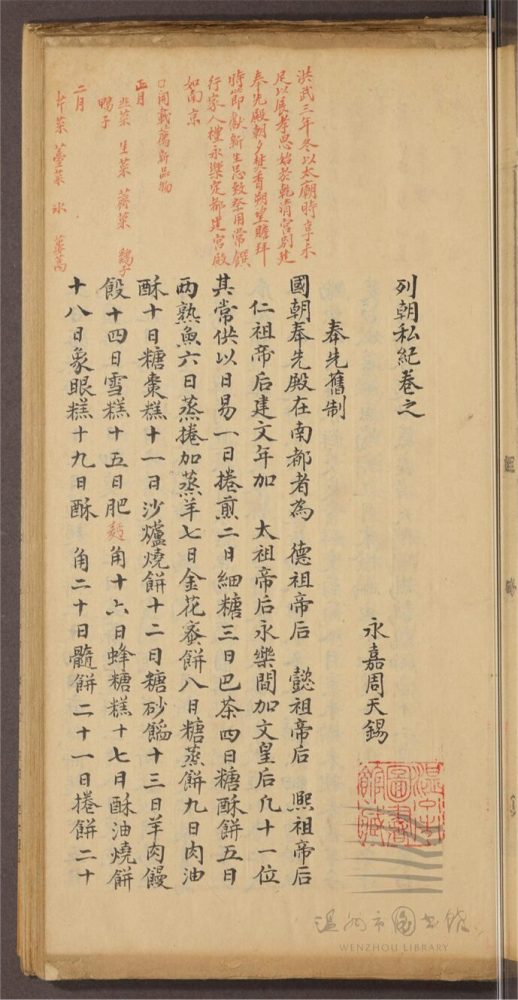 列朝私紀卷之
永嘉周天錫
奉先舊制
國朝奉先殿在南都者為 德祖帝后 懿祖帝后 熙祖帝后
仁祖帝后建文年加 太祖帝后永樂間加文皇后凡十一位
其常供以日易一日捲煎二日細糖三日巴茶四日糖酥餅五日
兩熟魚六日蒸捲加蒸羊七日金花蜜餅八日糖蒸餅九日肉油
酥十日糖棗糕十一日沙爐燒餅十二日糖砂餡十三日羊肉饅
餕十四日雪糕十五日肥麵角十六日蜂糖糕十七日酥油燒餅
十八日象眼糕十九日酥 角二十日髓餅二十一日捲餅二十
洪武三年冬以太廟時享未
足以展孝思始於乾清宮別建
奉先殿朝夕焚香朔望瞻拜
時節獻新生忌致祭用常饌
行家人禮永樂定都建宮殿
如南京
口開載薦新品物
正月
韭菜 生菜 薺菜 鷄子
鴨子
二月
芹菜 薹菜 冰 蔞蒿
溫州市圖書館藏
溫州市圖書館
WENZHOU LIBRARY